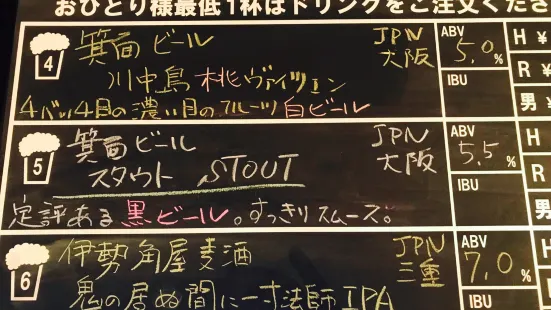 おひとり様最低1杯はドリンクをご注文くださ
4
箕面ビール
JPN
大阪
ABV
5.0%
IBU
H ¥
R ¥
男 ¥
川中島 桃ヴァイツェン
4バッチ目の濃い目のフルーツ白ビール
5
箕面ビール
JPN
大阪
ABV
5.5%
IBU
H
R
男
スタウト STOUT
定評ある黒ビール。すっきりスムーズ。
6
伊勢角屋麦酒
JPN
三重
ABV
7.0%
IBU
H
R
鬼の居ぬ間に一寸法師IPA